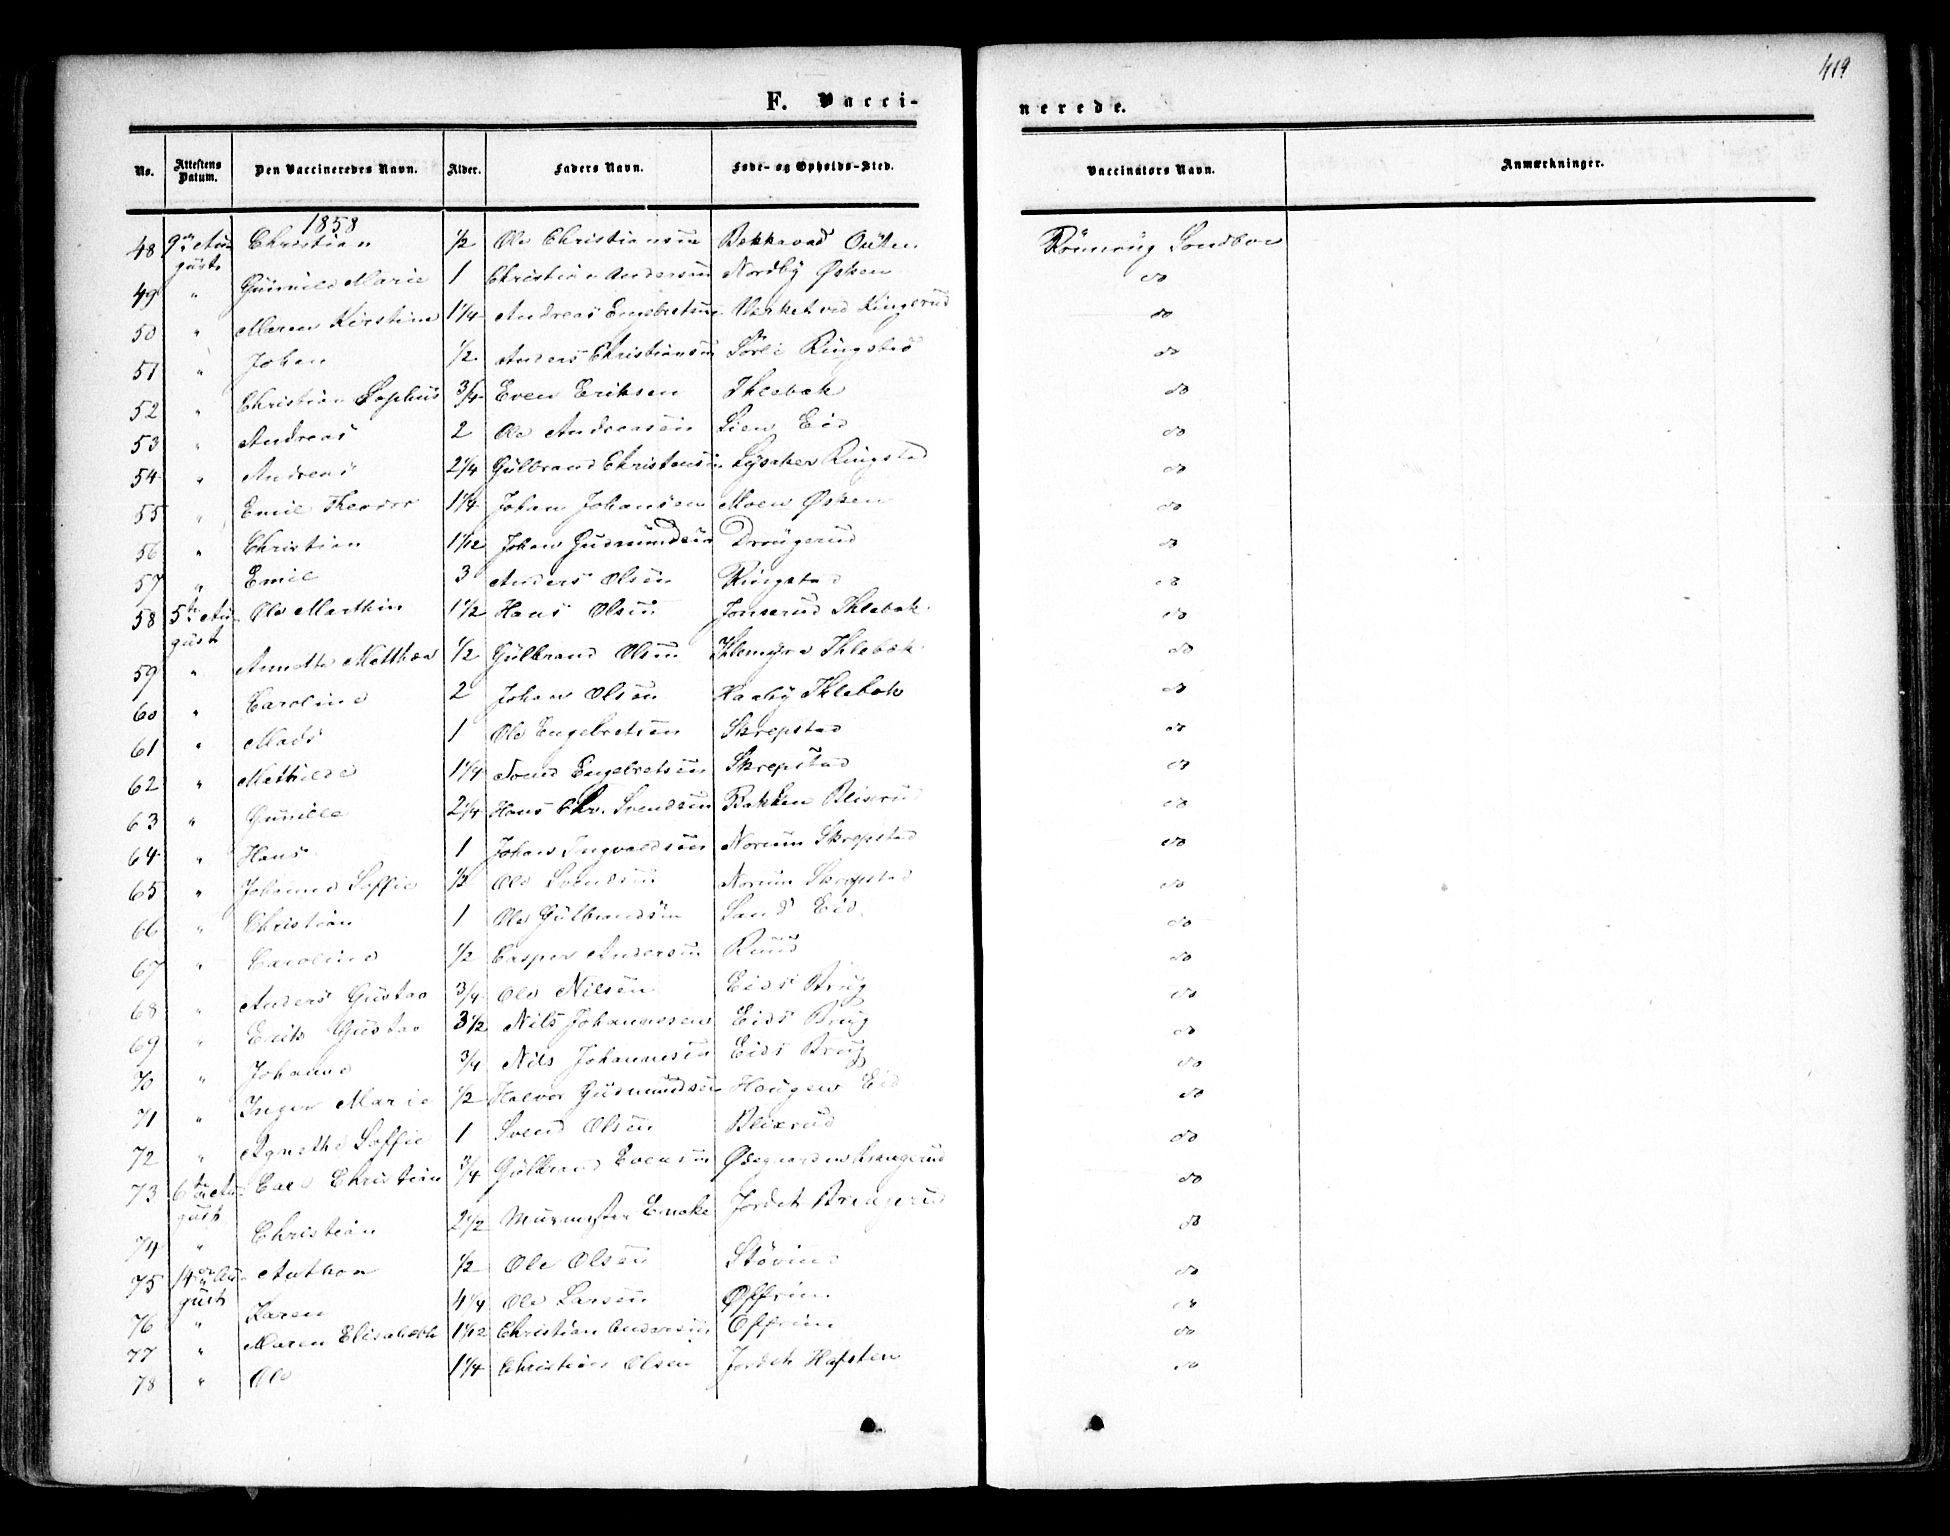 419
F. Vacci-
nerede.
No. Attestens Datum. Den Vaccineredes Navn. Alder. Faders Navn. Føde- og Opholds-Sted. Vaccinators Navn. Anmærkninger.
1858
48 Christian 1/2 Ole Christiansen
gust
49 " Marie 1 Christian Andersen Nordby Øsken do
50 " Maren Kirstine 1 1/4 Andreas Engebretsen ved Ringerud do
51 " Johan 1/2 Anders Christiansen Sörli Ringstad do
52 " Christian Sophus 3/4 Even Eriksen Thlebæk do
53 " Andreas 2 Ole Andreasen Lien Eid do
54 " Andreas 2 1/4 Gülbrand Christensen Lysaker Ringstad do
55 " Emil Theodor 1 1/4 Johan Johansen Moen Øsken do
56 " Christian 1 1/12 Johan Gudmundsen Drougerud do
57 " Emil 3 Anders Olsen Ringstad do
58 5te Au- Ole Marthin 1 1/2 Hans Olsen Jonserud Thlebæk do
gust
59 " Annette Matthea 1/2 Gülbrand Olsen Thlebæk do
60 " Caroline 2 Johan Olsen Haaby Thlebæk do
61 " Mads 1 Ole Engebretsen Skrepstad do
62 " Mathilde 1 1/4 Svend Engebretsen Skrepstad do
63 " Gunille 2 1/4 Hans Chr. Svendsen Bakken Blixrud do
64 " Hans 1 Johan Ingvaldsen Norum Skrepstad do
65 " Johanne Soffie 1/2 Ole Svendsen Norum Skrepstad do
66 " Christian 1 Ole Gülbrandsen Sand Eid do
67 " Caroline 1/2 Casper Andersen Ruud do
68 " Anders Gustav 3/4 Ole Nilsen Eids Brug do
69 " Erik Gustav 3 1/2 Nils Johannesen Eids Brug do
70 " Johanne 3/4 Nils Johannesen Eids Brug do
71 " Inger Marie 1/2 Halvor Gudmundsen Haugen Eid do
72 " Agnethe Soffie 1 Svend Olsen Blixrud do
73 6te Au- Carl Christian 3/4 Gülbrand Evensen Ødegaarden do
gust
74 " Christian 2 1/2 Murmester Jordet do
75 14de Au- Anthon 1/2 Ole Olsen Støvind do
gust
76 " Karen 4 1/4 Ole Larsen Øffrim do
77 " Maren Elisabeth 1 1/12 Christian Andersen Offrim do
78 " Ole 1 1/4 Christian Olsen Jordet Hafsten do